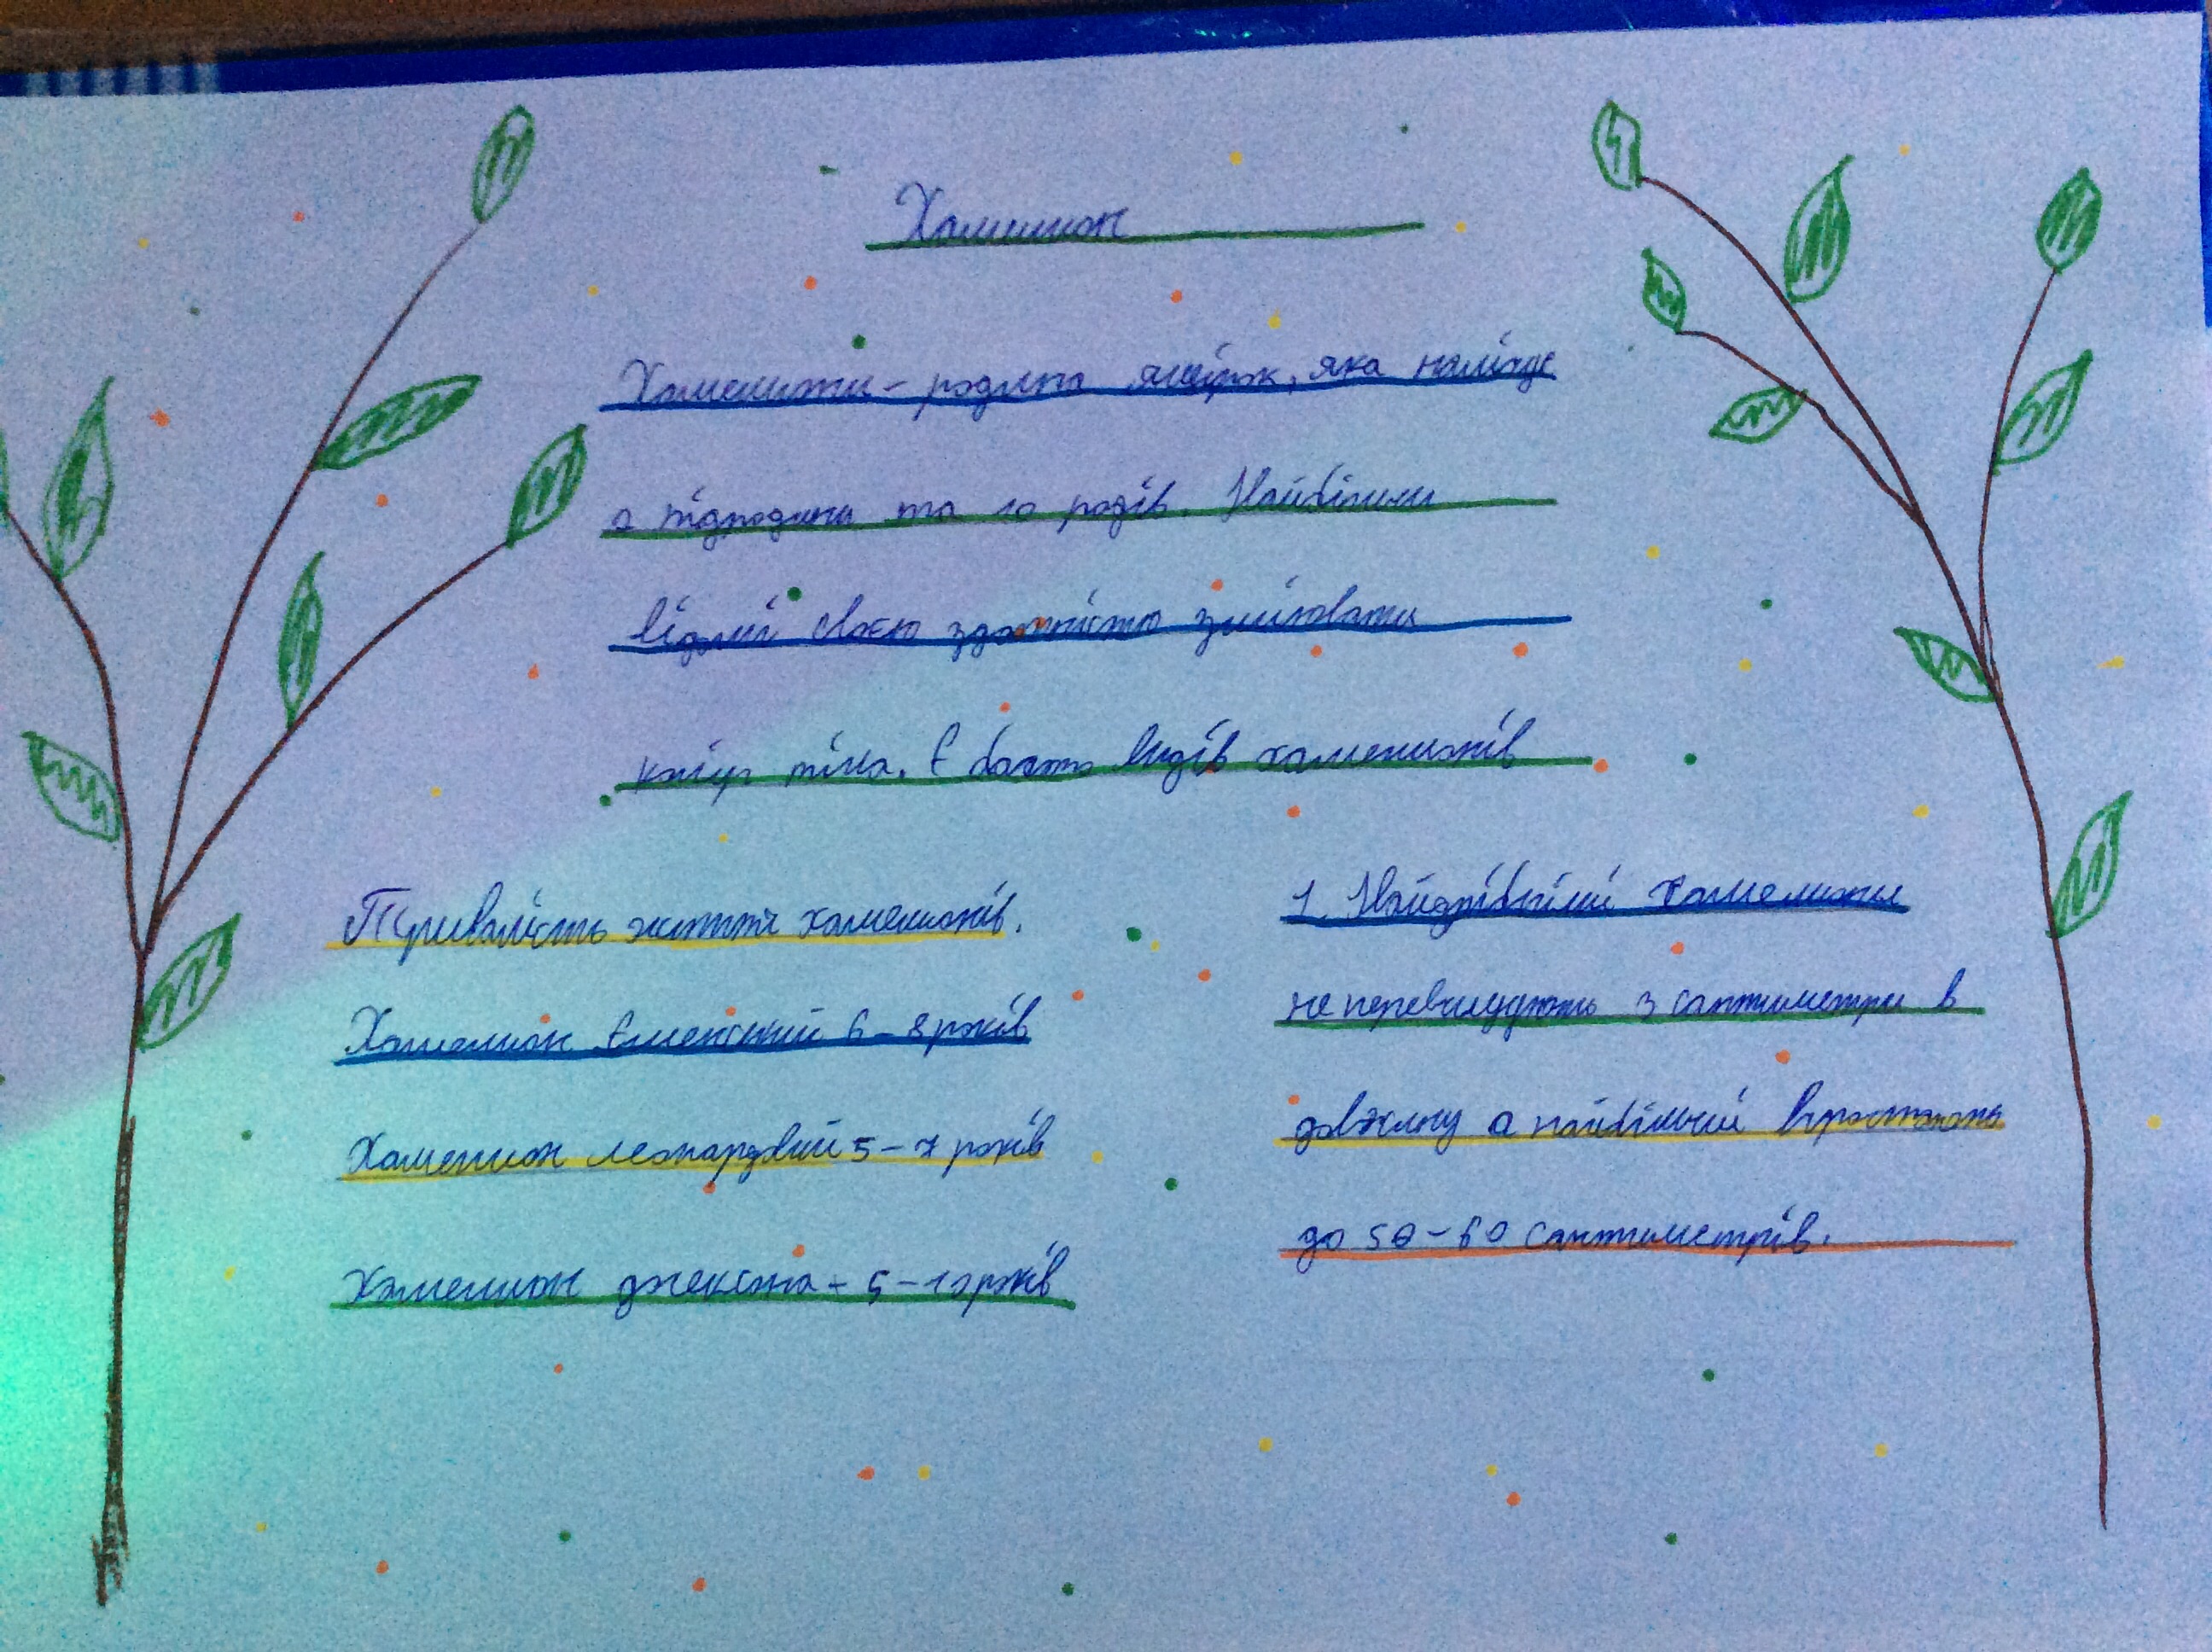 Хамелион
Хамелиони - родина ящірок, яка налічує
2 підродини та 10 родів. Найбільш
відомі своєю здатністю змінювати
колір тіла. Є багато видів хамелионів
Тривалість життя хамелионів.
Хамелион Єменський 6-8 років
Хамелион леопардовий 5-7 років
Хамелион джексона - 5-10 років
1. Найдрібніші хамелиони
не перевищують 3 сантиметри в
довжину а найбільший виростають
до 50-60 сантиметрів.